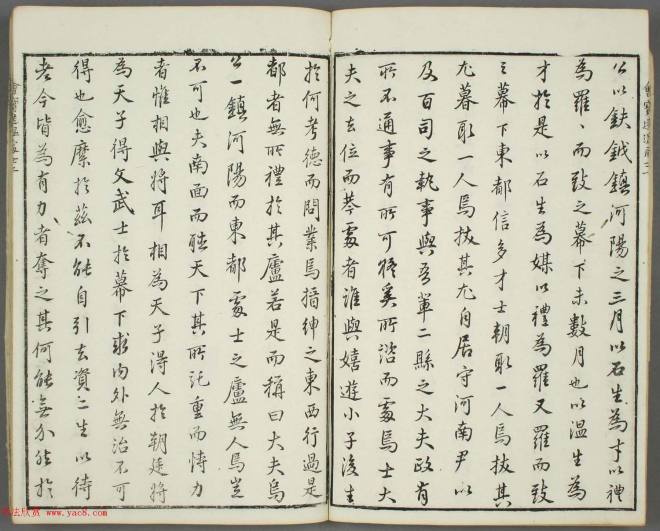 公以鈇鉞鎮河陽之三月以石生為才以禮
為羅、而致之幕下未數月也以温生為
才於是以石生為媒以禮為羅又羅而致
之幕下東都信多才士朝取一人焉拔其
尤暮取一人焉拔其尤自居守河南尹以
及百司之執事與吾輩二縣之大夫政有
所不通事有所可疑奚所諮而處焉士大
夫之去位而巷處者誰與嬉遊小子後生
於何考德而問業焉搢紳之東西行過是
都者無所禮於其廬若是而稱曰大夫烏
公一鎮河陽而東都處士之廬無人焉豈
不可也夫南面而聽天下其所託重而恃力
者惟相與將耳相為天子得人於朝廷將
為天子得文武士於幕下求内外無治不可
得也愈縻於茲不能自引去資二生以待
老今皆為有力者奪之其何能無介然於
書法欣賞 www.yac8.com